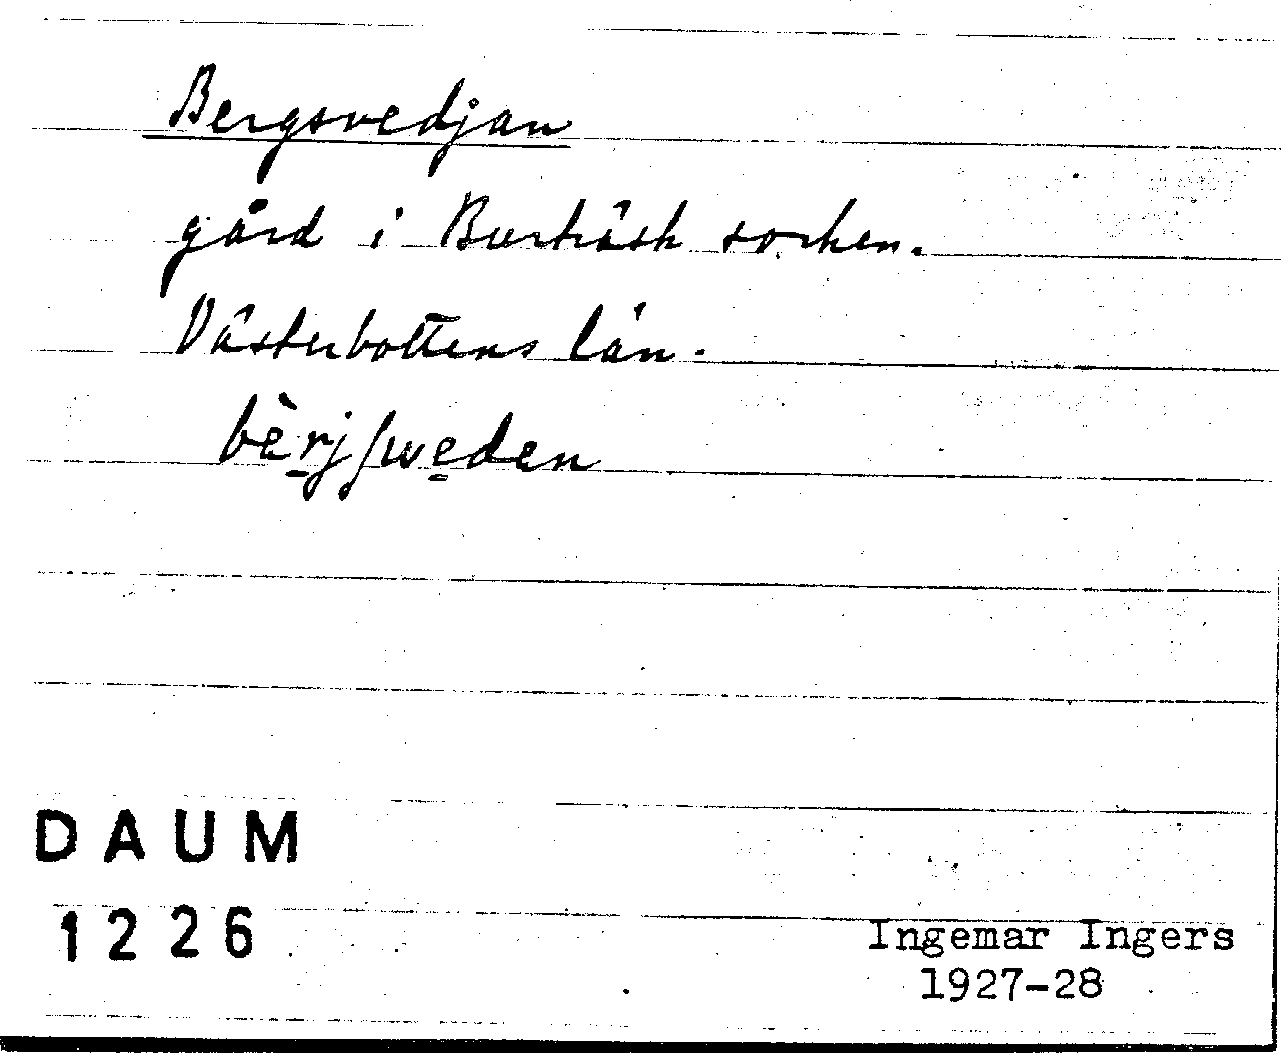 Bergsvedjan
gård i Burträsk socken.
Västerbottens län.
bèrjʃweden
DAUM
1226
Ingemar Ingers
1927-28